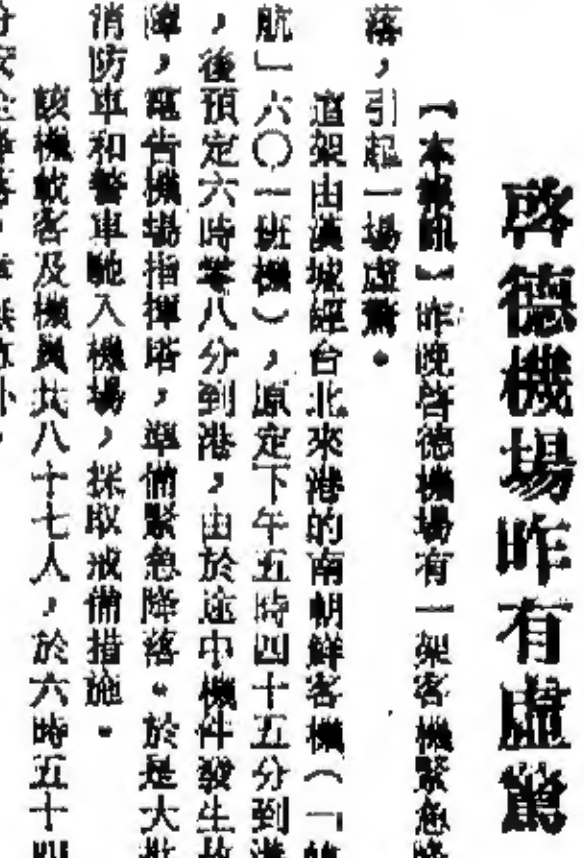 啓德機場昨有虛驚
【本報訊】昨晚啓德機場有一架客機緊急降
落，引起一場虛驚。
這架由漢城經台北來港的南朝鮮客機（「韓
航」六〇一班機），原定下午五時四十五分到港
，後預定六時零八分到港，由於途中機件發生故
障，電告機場指揮塔，準備緊急降落。於是大批
消防車和警車馳入機場，採取戒備措施。
該機載客及機員共八十七人，於六時五十四
分安全降落，幸無意外。